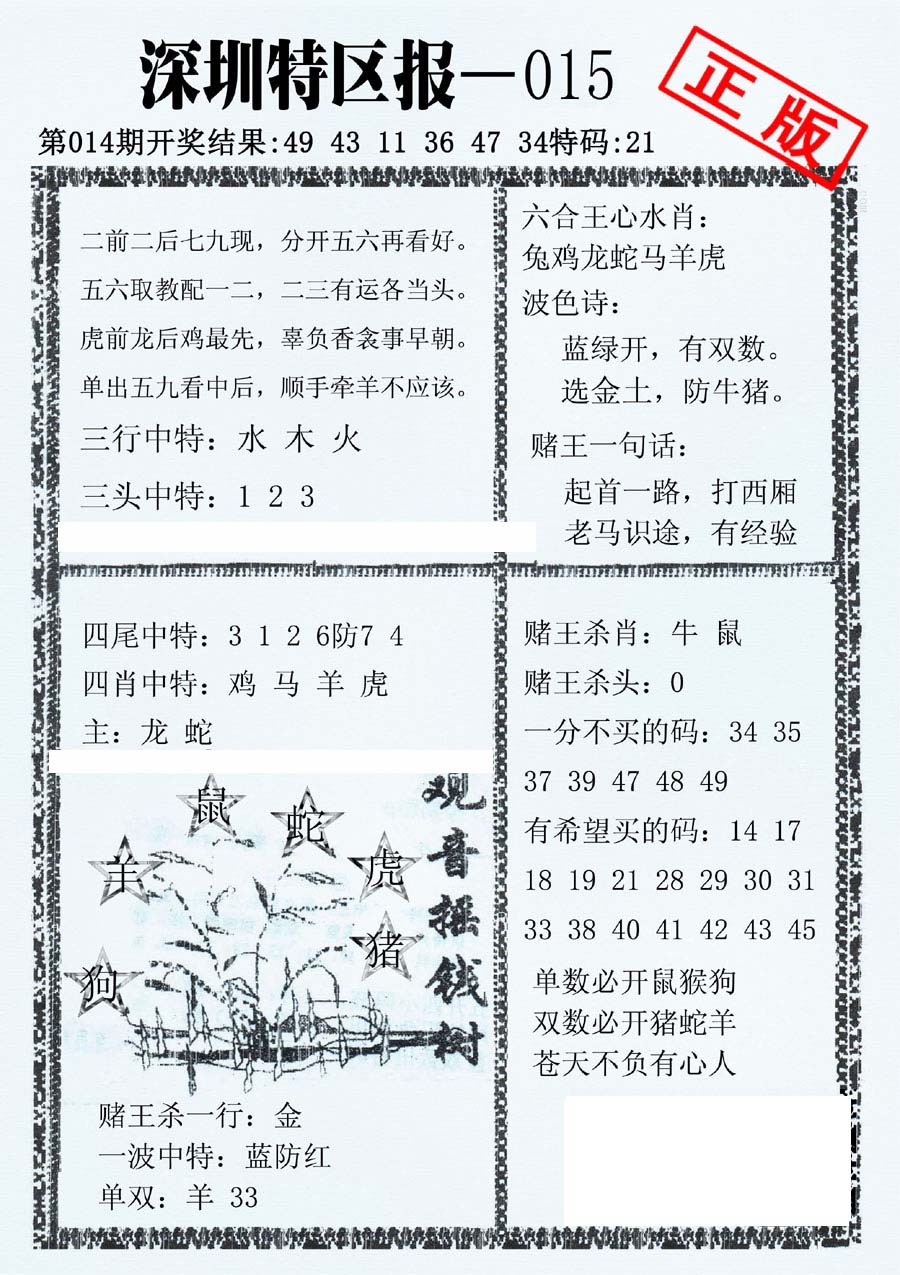 深圳特区报—015
正版
第014期开奖结果:49 43 11 36 47 34特码:21
二前二后七九现，分开五六再看好。
五六取教配一二，二三有运各当头。
虎前龙后鸡最先，辜负香衾事早朝。
单出五九看中后，顺手牵羊不应该。
三行中特：水 木 火
三头中特：1 2 3
六合王心水肖：
兔鸡龙蛇马羊虎
波色诗：
蓝绿开，有双数。
选金土，防牛猪。
赌王一句话：
起首一路，打西厢
老马识途，有经验
四尾中特：3 1 2 6防7 4
四肖中特：鸡 马 羊 虎
主：龙 蛇
鼠
蛇
羊
虎
猪
狗
观音摇钱树
赌王杀一行：金
一波中特：蓝防红
单双：羊 33
赌王杀肖：牛 鼠
赌王杀头：0
一分不买的码：34 35
37 39 47 48 49
有希望买的码：14 17
18 19 21 28 29 30 31
33 38 40 41 42 43 45
单数必开鼠猴狗
双数必开猪蛇羊
苍天不负有心人